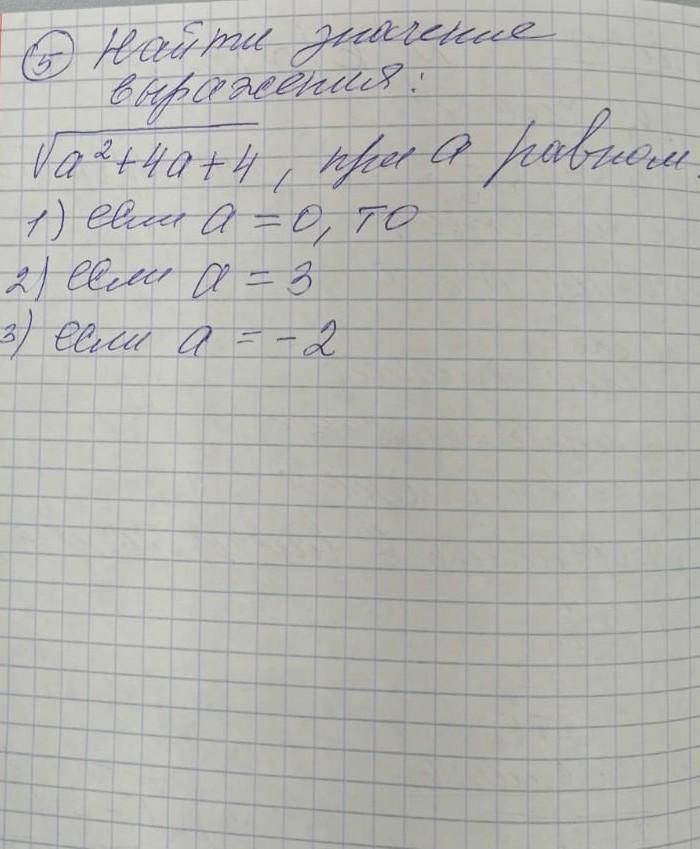 ⑤ Найти значение
выражения:
√a²+4a+4, при a равном.
1) если a = 0, то
2) если a = 3
3) если a = -2